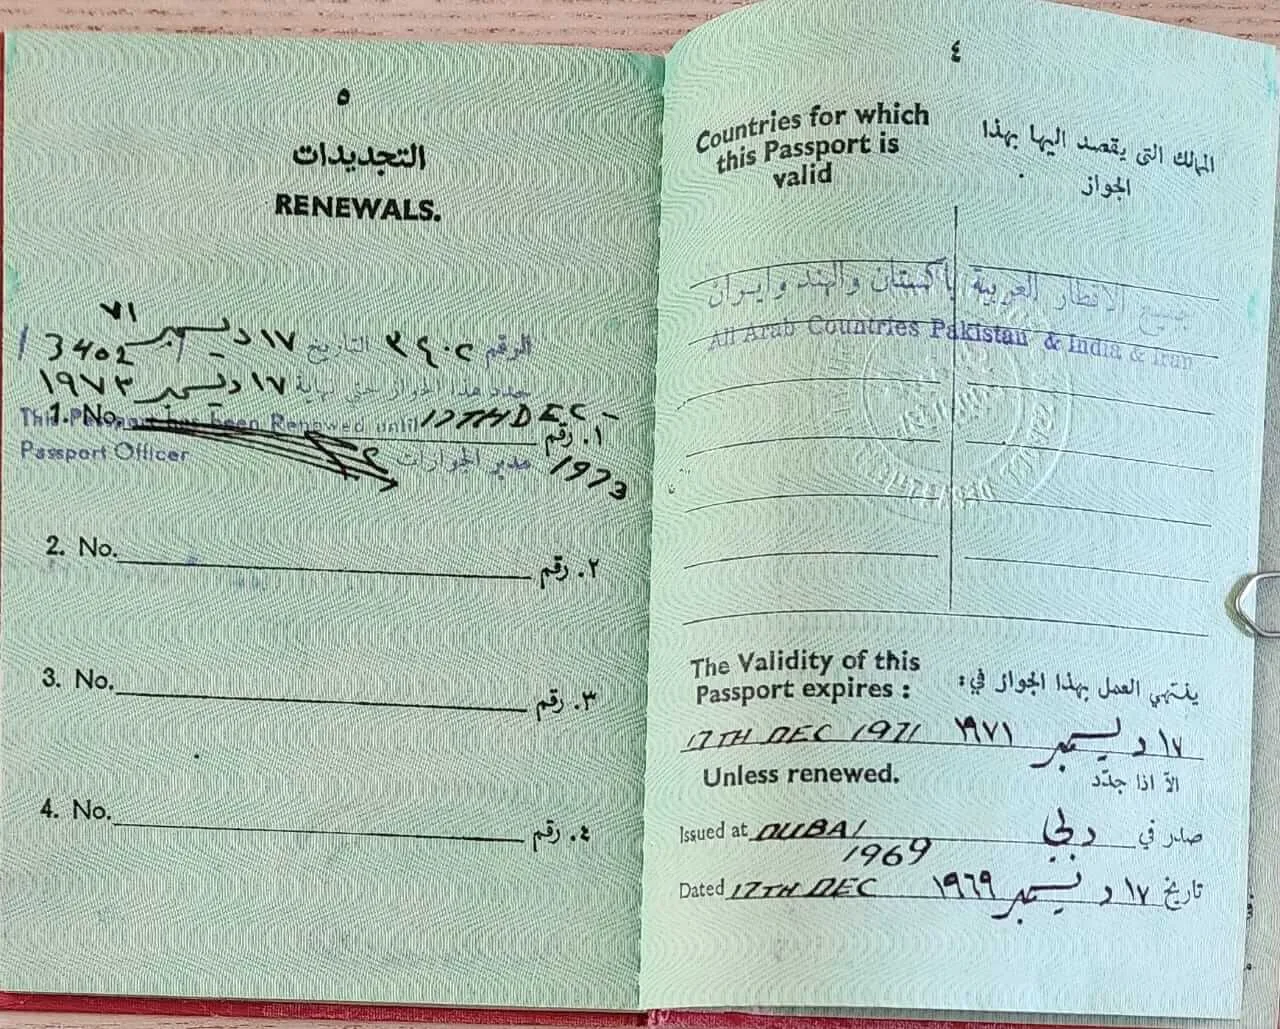 ٤
Countries for which
this Passport is
valid
الممالك التى يقصد اليها بهذا
الجواز
جميع الاقطار العربية باكستان والهند وايران
All Arab Countries Pakistan & India & Iran
The Validity of this
Passport expires :
ينتهي العمل بهذا الجواز في:
17TH DEC 1971 ١٧ ديسمبر ١٩٧١
Unless renewed.
الاّ اذا جدّد
Issued at DUBAI
صدر في دبي
1969
Dated 17TH DEC
تاريخ ١٧ ديسمبر ١٩٦٩
٥
التجديدات
RENEWALS.
٧١
الرقم ٣٤٠٢ التاريخ ١٧ ديسمبر
3402
جدد هذا الجواز حتى نهاية ١٧ ديسمبر ١٩٧٣
1. No. ١. رقم
This Passport has been Renewed until 17TH DEC-
1973
Passport Officer مدير الجوازات
2. No. ٢. رقم
3. No. ٣. رقم
4. No. ٤. رقم